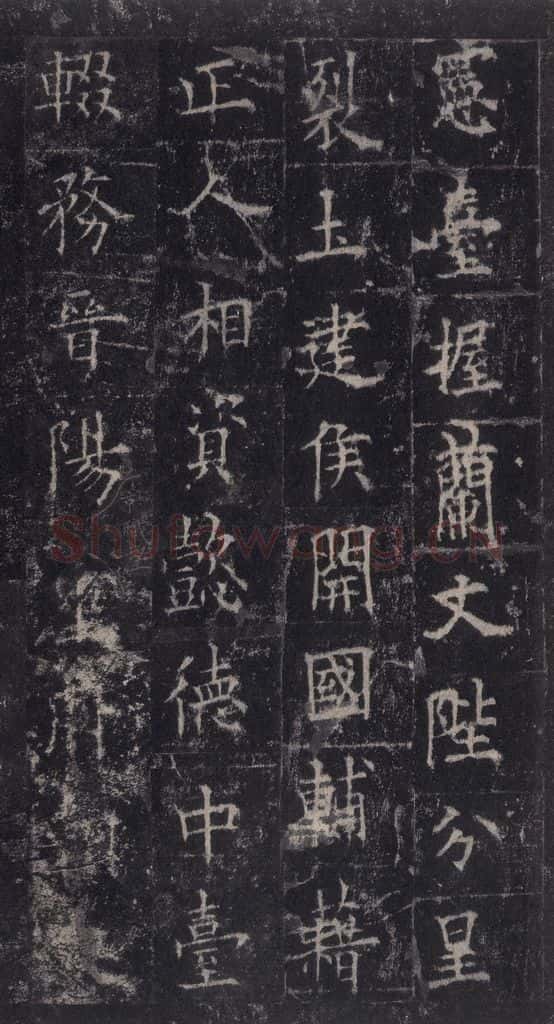 憲臺握蘭文陛分星
裂土建侯開國輔藉
正人相資懿德中臺
輟務晉陽
Shufawang.cn